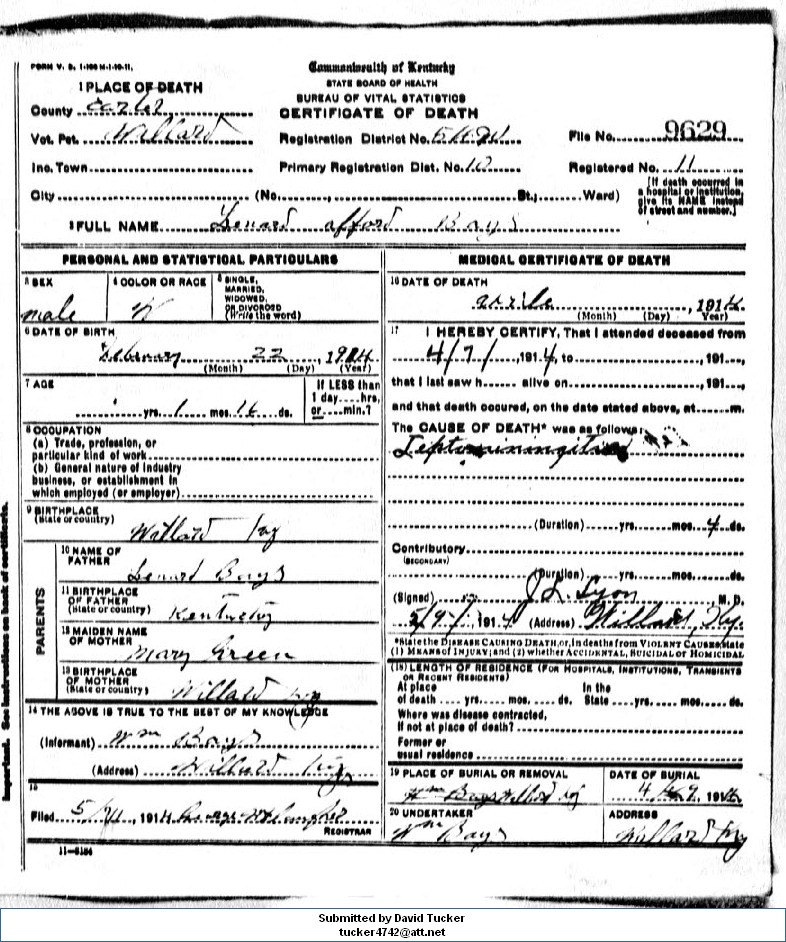 FORM V. S. 1-100 M-1-10-11.
Commonwealth of Kentucky
STATE BOARD OF HEALTH
BUREAU OF VITAL STATISTICS
CERTIFICATE OF DEATH
1 PLACE OF DEATH
County Carter
Vot. Pct. Willard
Registration District No.
File No. 9629
Inc. Town
Primary Registration Dist. No. 10
Registered No. 11
City (No. , St.; Ward)
[If death occurred in a hospital or institution, give its NAME instead of street and number.]
2 FULL NAME Lenard afford Bays
PERSONAL AND STATISTICAL PARTICULARS
3 SEX
male
4 COLOR OR RACE
W
5 SINGLE, MARRIED, WIDOWED, OR DIVORCED (Write the word)
6 DATE OF BIRTH
February 22, 1914
(Month) (Day) (Year)
7 AGE
yrs. 1 mos. ds.
If LESS than 1 day hrs. or min.?
8 OCCUPATION
(a) Trade, profession, or particular kind of work
(b) General nature of industry business, or establishment in which employed (or employer)
9 BIRTHPLACE (State or country)
Willard Ky
PARENTS
10 NAME OF FATHER
Lenard Bays
11 BIRTHPLACE OF FATHER (State or country)
Kentucky
12 MAIDEN NAME OF MOTHER
Mary Green
13 BIRTHPLACE OF MOTHER (State or country)
Willard Ky
14 THE ABOVE IS TRUE TO THE BEST OF MY KNOWLEDGE
(Informant) Wm Bays
(Address) Willard Ky
15
Filed 5/11, 1914
REGISTRAR
11-5184
MEDICAL CERTIFICATE OF DEATH
16 DATE OF DEATH
1914
(Month) (Day) (Year)
17 I HEREBY CERTIFY, That I attended deceased from
4/7/, 1914, to , 191
that I last saw h alive on , 191
and that death occured, on the date stated above, at m.
The CAUSE OF DEATH* was as follows:
(Duration) yrs. mos. 4 ds.
Contributory
(SECONDARY)
(Duration) yrs. mos. ds.
(Signed) J. L. Lyon M. D.
5/9/ 1914 (Address) Willard, Ky.
*State the DISEASE CAUSING DEATH, or, in deaths from VIOLENT CAUSES, state (1) MEANS OF INJURY; and (2) whether ACCIDENTAL, SUICIDAL or HOMICIDAL
(18) LENGTH OF RESIDENCE (FOR HOSPITALS, INSTITUTIONS, TRANSIENTS OR RECENT RESIDENTS)
At place of death yrs. mos. ds. In the State yrs. mos. ds.
Where was disease contracted, if not at place of death?
Former or usual residence
19 PLACE OF BURIAL OR REMOVAL
Wm Bays Willard Ky
DATE OF BURIAL
1914
20 UNDERTAKER
Wm Bays
ADDRESS
Willard Ky
Important. See instructions on back of certificate.
Submitted by David Tucker
tucker4742@att.net